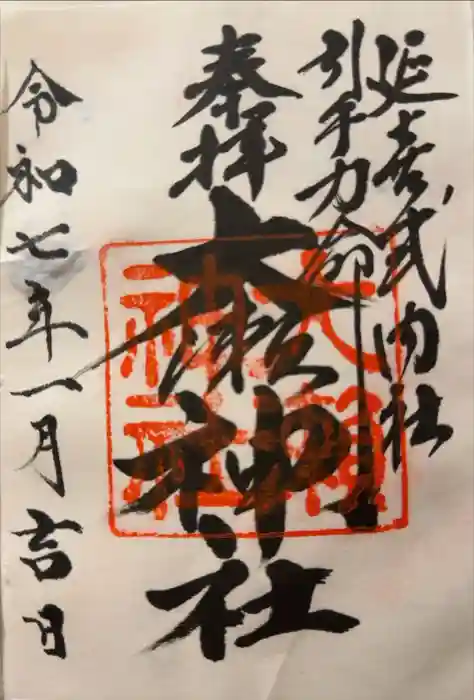 延喜式内社
引手力命
奉拝
大瀬神社
令和七年一月吉日
大瀬
神社